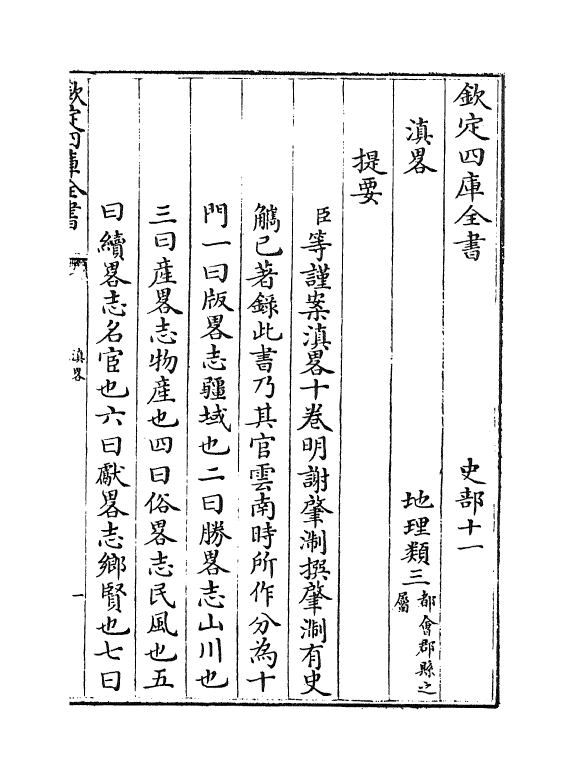 欽定四庫全書　史部十一
滇畧　地理類三都會郡縣之屬
提要
臣等謹案滇畧十卷明謝肇淛撰肇淛有史
觿已著錄此書乃其官雲南時所作分為十
門一曰版畧志疆域也二曰勝畧志山川也
三曰產畧志物產也四曰俗畧志民風也五
曰續畧志名宦也六曰獻畧志鄉賢也七曰
欽定四庫全書　滇畧　一